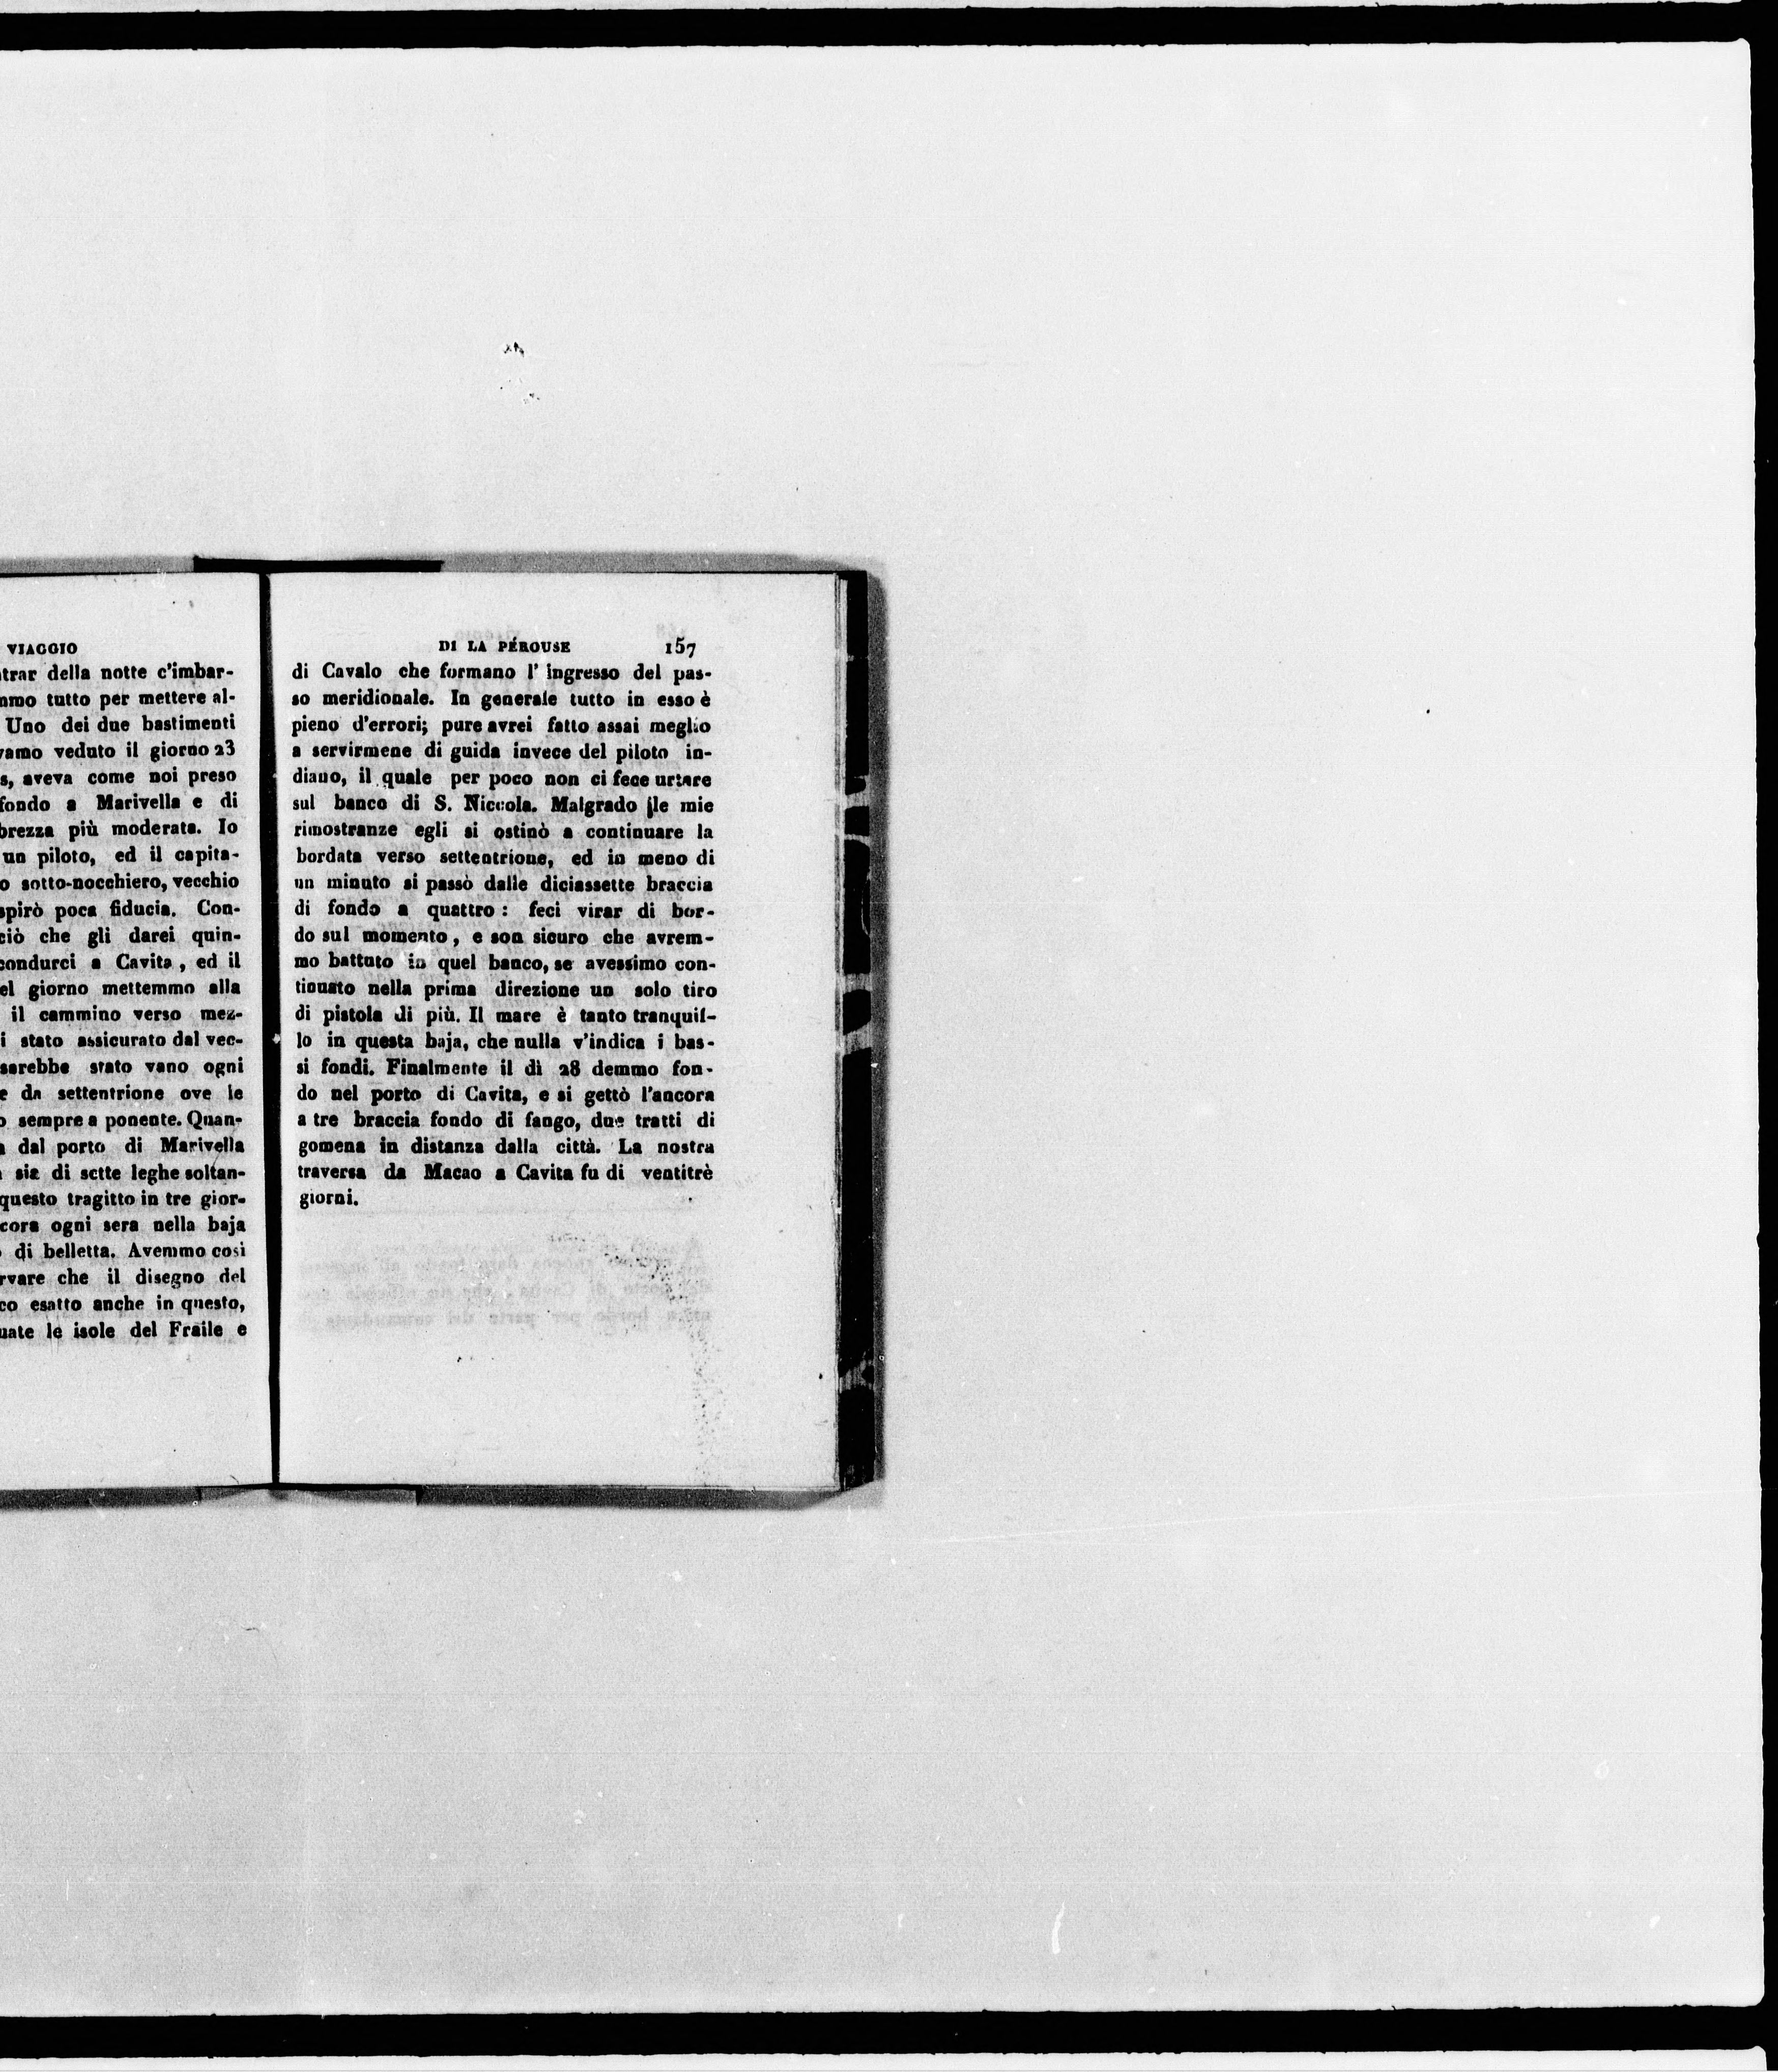 VIAGGIO
della notte c'imbar-
tutto per mettere al-
Uno dei due bastimenti
veduto il giorno 23
aveva come noi preso
fondo a Marivella e di
brezza più moderata. Io
un piloto, ed il capita-
sotto-nocchiero, vecchio
poca fiducia. Con-
ciò che gli darei quin-
condurci a Cavita, ed il
giorno mettemmo alla
il cammino verso mez-
stato assicurato dal vec-
sarebbe stato vano ogni
da settentrione ove le
sempre a ponente. Quan-
dal porto di Marivella
sia di sette leghe soltan-
questo tragitto in tre gior-
ogni sera nella baja
di belletta. Avemmo così
che il disegno del
esatto anche in questo,
le isole del Fraile e
DI LA PÉROUSE 157
di Cavalo che formano l' ingresso del pas-
so meridionale. In generale tutto in esso è
pieno d'errori; pure avrei fatto assai meglio
a servirmene di guida invece del piloto in-
diano, il quale per poco non ci fece urtare
sul banco di S. Niccola. Malgrado le mie
rimostranze egli si ostinò a continuare la
bordata verso settentrione, ed in meno di
un minuto si passò dalle diciassette braccia
di fondo a quattro: feci virar di bor-
do sul momento, e son sicuro che avrem-
mo battuto in quel banco, se avessimo con-
tinuato nella prima direzione un solo tiro
di pistola di più. Il mare è tanto tranquil-
lo in questa baja, che nulla v'indica i bas-
si fondi. Finalmente il dì 28 demmo fon-
do nel porto di Cavita, e si gettò l'ancora
a tre braccia fondo di fango, due tratti di
gomena in distanza dalla città. La nostra
traversa da Macao a Cavita fu di ventitrè
giorni.